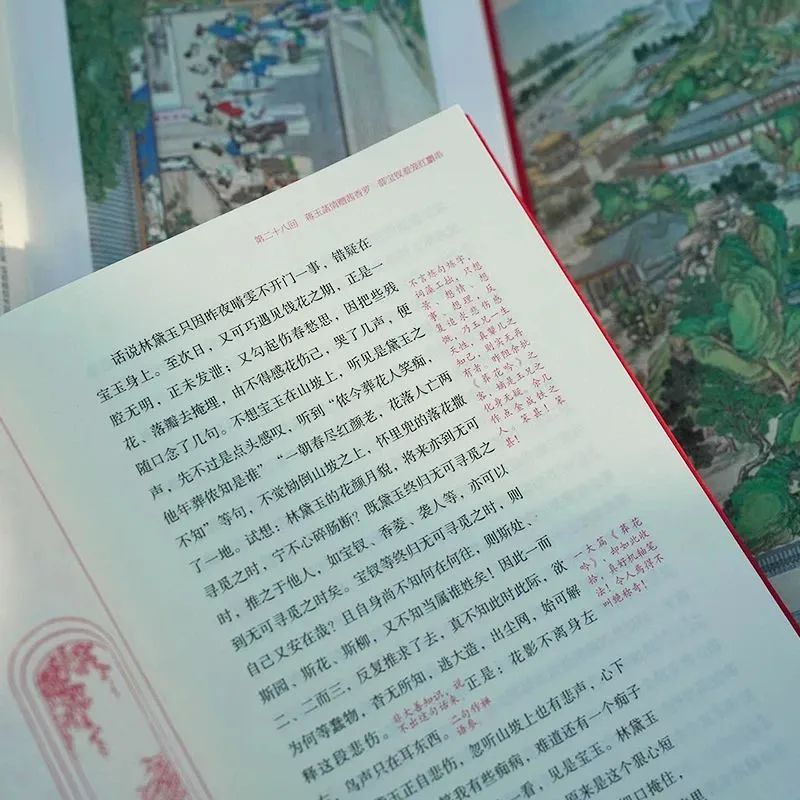 第二十八回 蒋玉菡情赠茜香罗 薛宝钗羞笼红麝串
话说林黛玉只因昨夜晴雯不开门一事，错疑在
宝玉身上。至次日，又可巧遇见饯花之期，正是一
腔无明，正未发泄；又勾起伤春愁思，因把些残
花、落瓣去掩埋，由不得感花伤己，哭了几声，便
随口念了几句。不想宝玉在山坡上，听见是黛玉之
声，先不过是点头感叹，听到“侬今葬花人笑痴，
他年葬侬知是谁”“一朝春尽红颜老，花落人亡两
不知”等句，不觉恸倒山坡之上，怀里兜的落花撒
了一地。试想：林黛玉的花颜月貌，将来亦到无可
寻觅之时，宁不心碎肠断？既黛玉终归无可寻觅之
时，推之于他人，如宝钗、香菱、袭人等，亦可以
到无可寻觅之时矣。宝钗等终归无可寻觅之时，则
自己又安在哉？且自身尚不知何在何往，则斯处、
斯园、斯花、斯柳，又不知当属谁姓矣！因此一而
二、二而三，反复推求了去，真不知此时此际，欲
为何等蠢物，杳无所知，逃大造，出尘网，始可解
释这段悲伤。
非大善知识，说
不出这句话来。
二句作禅
语参。
正是：花影不离身左
，鸟声只在耳东西。
玉正自悲伤，忽听山坡上也有悲声，心下
我有些痴病，难道还有一个痴子
一看，见是宝玉。林黛玉
原来是这个狠心短
口掩住，
不言炼句炼字，
词藻工拙，只想
景、想情、想
事、想理，反
复追求悲伤感
慨，乃玉兄一生
天性。真颦儿之
知己，则实无再
有者。昨阻余批
《葬花吟》之
客，嫡是玉兄之
化身无疑。余几
作点金成铁之
人。笨甚！笨
甚！
一大篇《葬花
吟》却如此收
拾，真好机轴笔
法！令人焉得不
叫绝称奇！